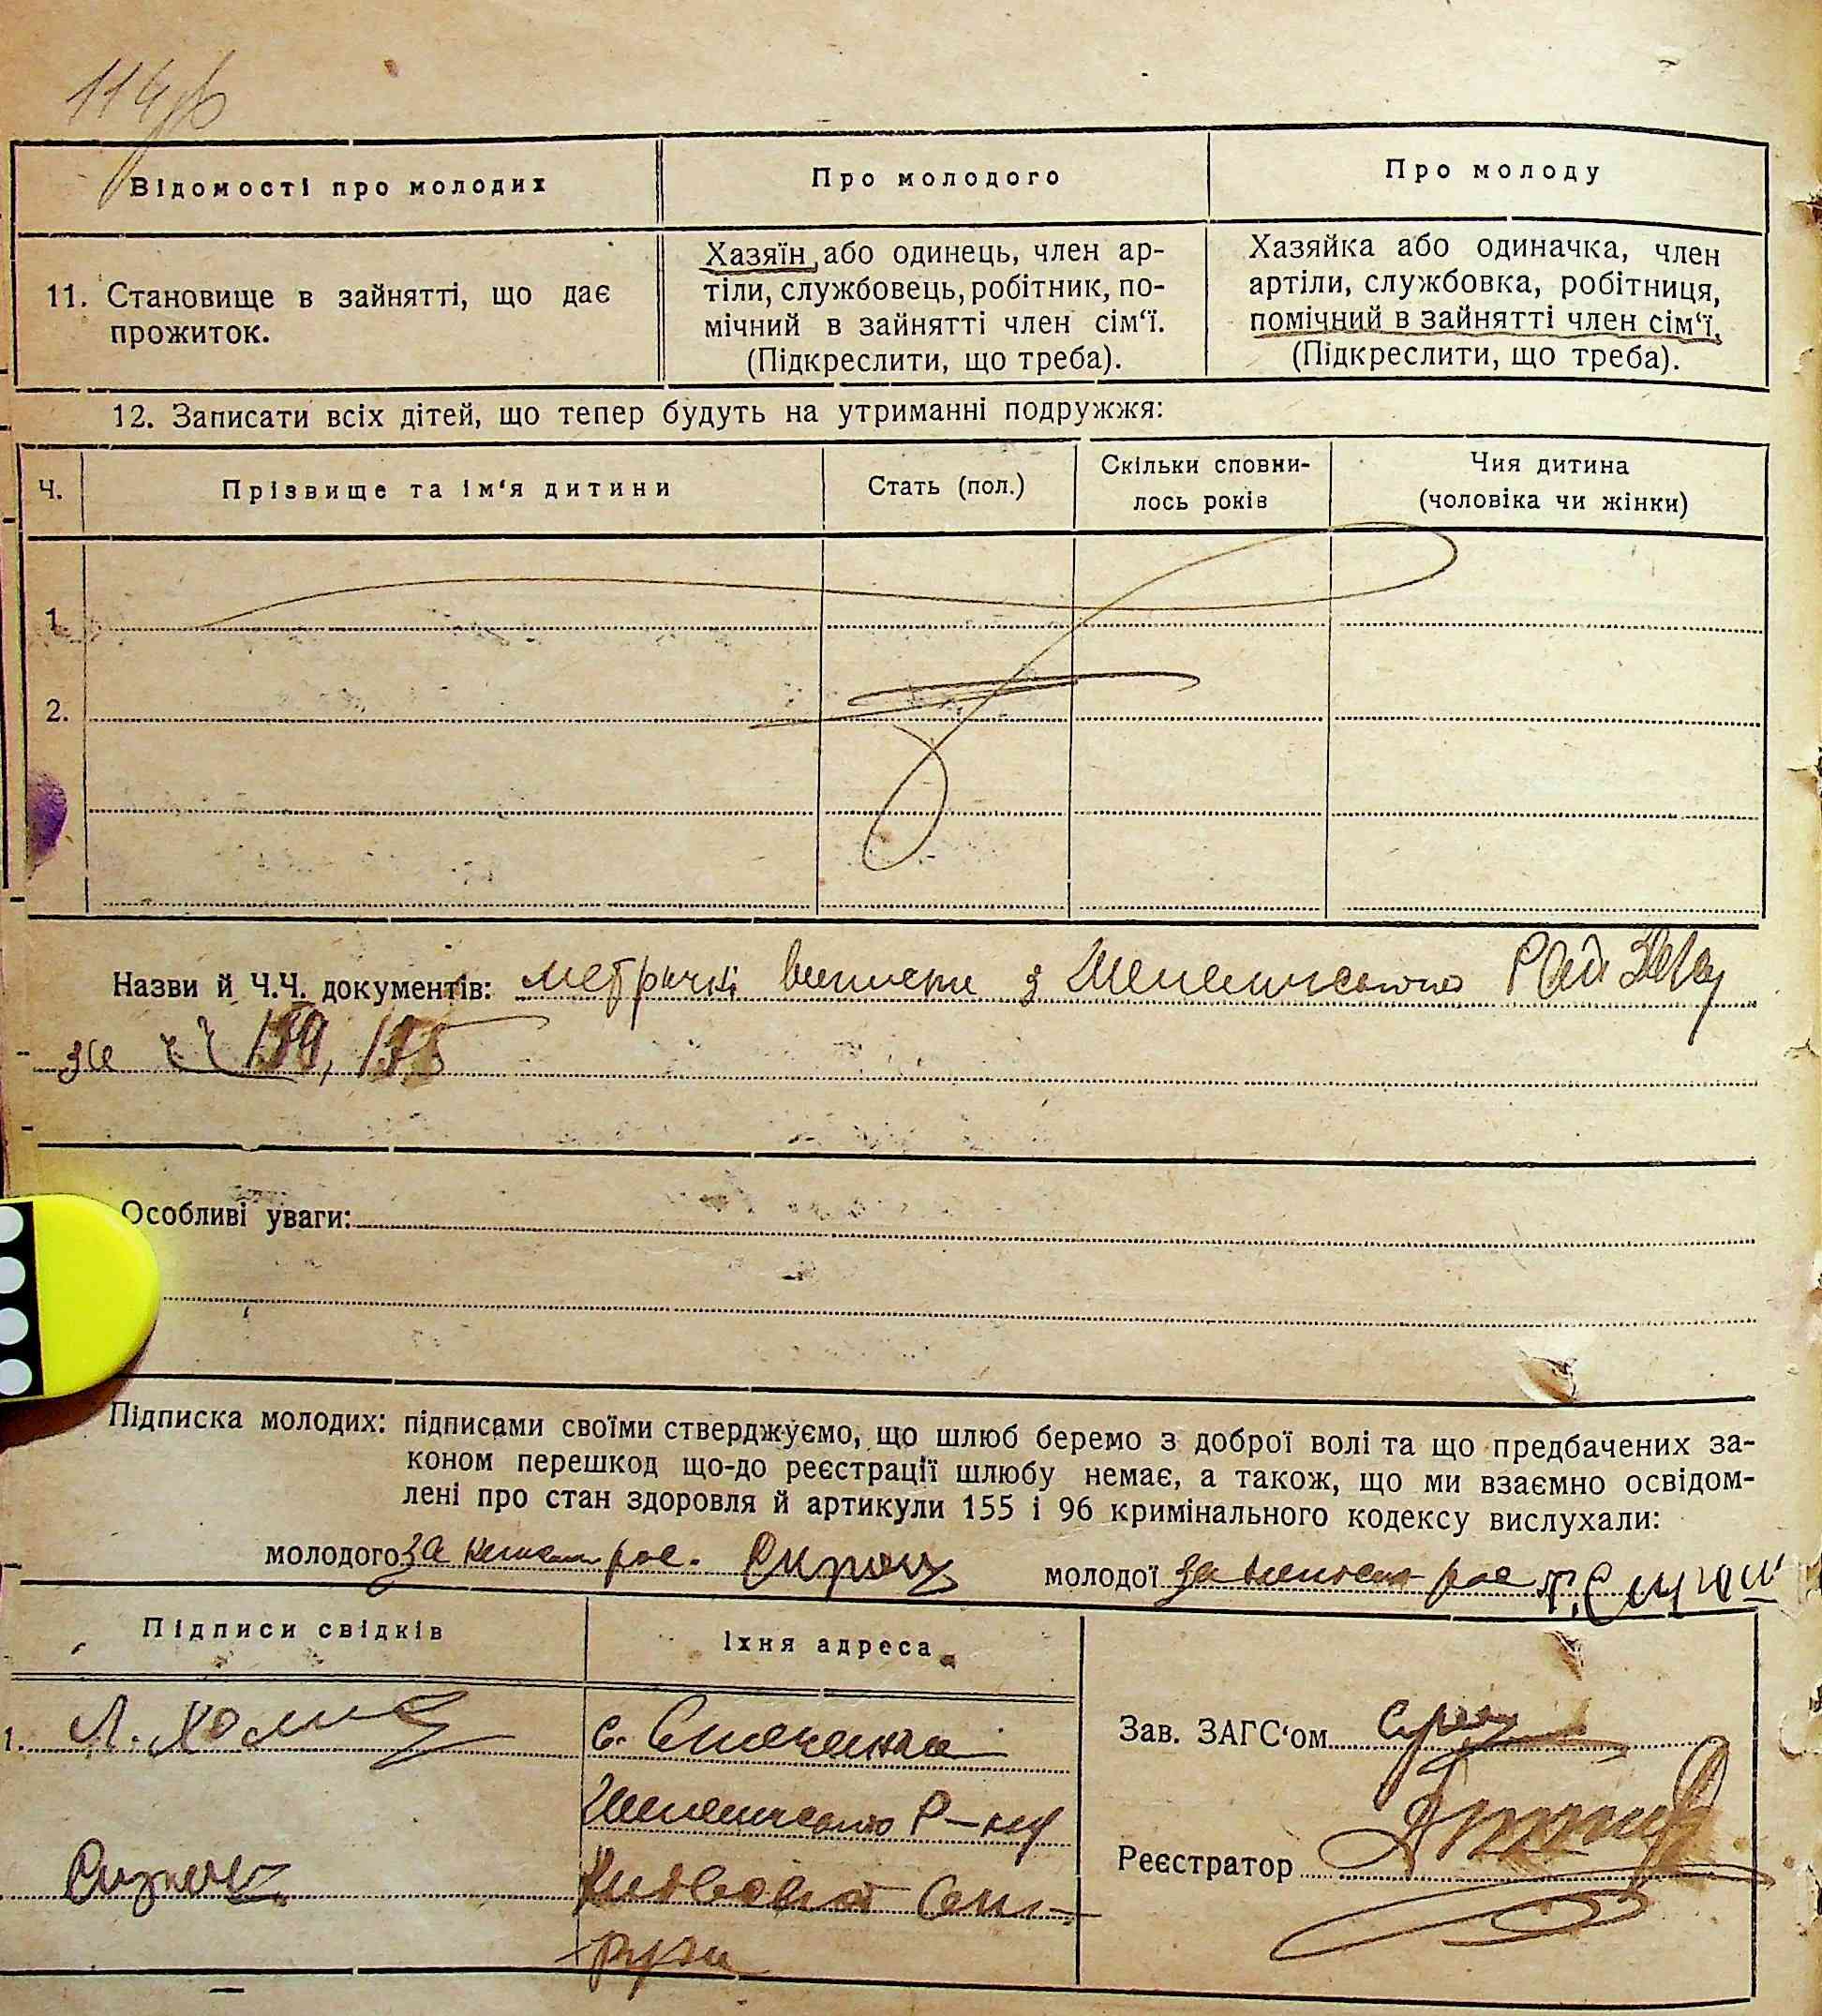 114
Відомості про молодих
Про молодого
Про молоду
11. Становище в зайнятті, що дає
прожиток.
Хазяїн або одинець, член ар-
тіли, службовець, робітник, по-
мічний в зайнятті член сім‘ї.
(Підкреслити, що треба).
Хазяйка або одиначка, член
артіли, службовка, робітниця,
помічний в зайнятті член сім‘ї.
(Підкреслити, що треба).
12. Записати всіх дітей, що тепер будуть на утриманні подружжя:
Ч.
Прізвище та ім‘я дитини
Стать (пол.)
Скільки сповни-
лось років
Чия дитина
(чоловіка чи жінки)
1.
2.
Назви й Ч.Ч. документів: метричні виписи з
за ч ч
Особливі уваги:
Підписка молодих: підписами своїми стверджуємо, що шлюб беремо з доброї волі та що предбачених за-
коном перешкод що-до реєстрації шлюбу немає, а також, що ми взаємно освідом-
лені про стан здоровля й артикули 155 і 96 кримінального кодексу вислухали:
молодого за
молодої за
Підписи свідків
Їхня адреса
1. Л.
с.
Р-ну
округи
Зав. ЗАГС‘ом
Реєстратор